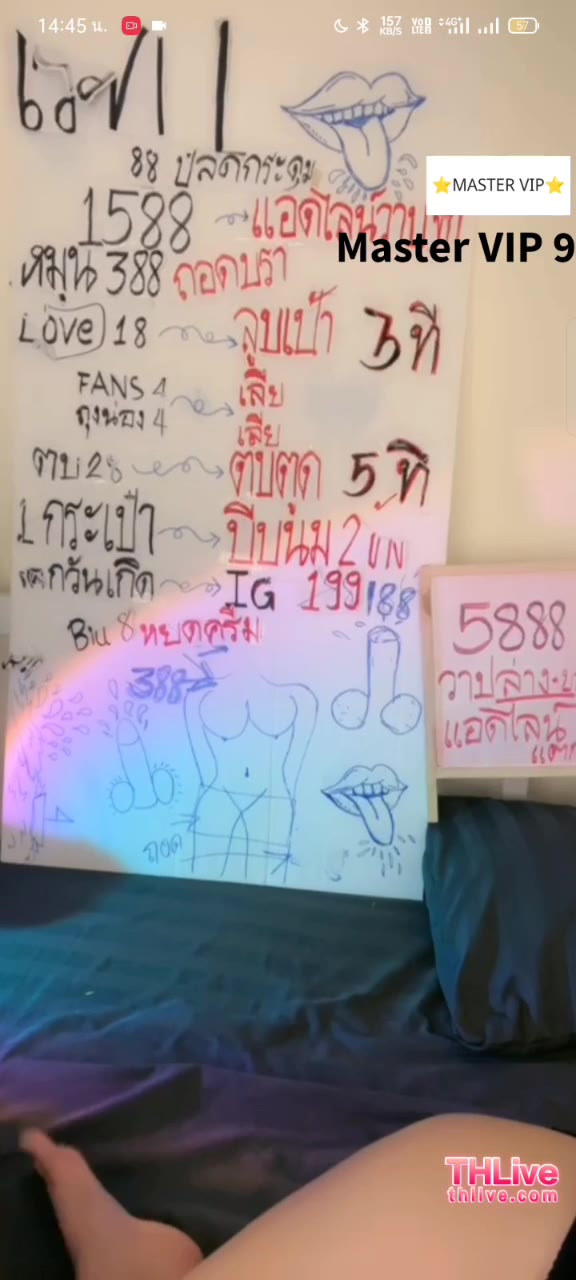 14:45 น.
157 KB/S
VoD LTE 4G+
57
⭐MASTER VIP⭐
Master VIP 9
88 ปลดกระดุม
1588 แอดไลน์วาบหวิว
หมุน 388 ถอดบรา
Love 18 ลูบเป้า 3 ที
FANS 4 เลีย
ถุงน่อง 4 เลีย
ตบ 28 ตบตูด 5 ที
1 กระเป๋า บีบนม 2
เค้กวันเกิด IG 199 188
Biu 8 หยดครีม
388
ถอด
5888
วาปล่าง
แอดไลน์
แตก
THLive
thlive.com